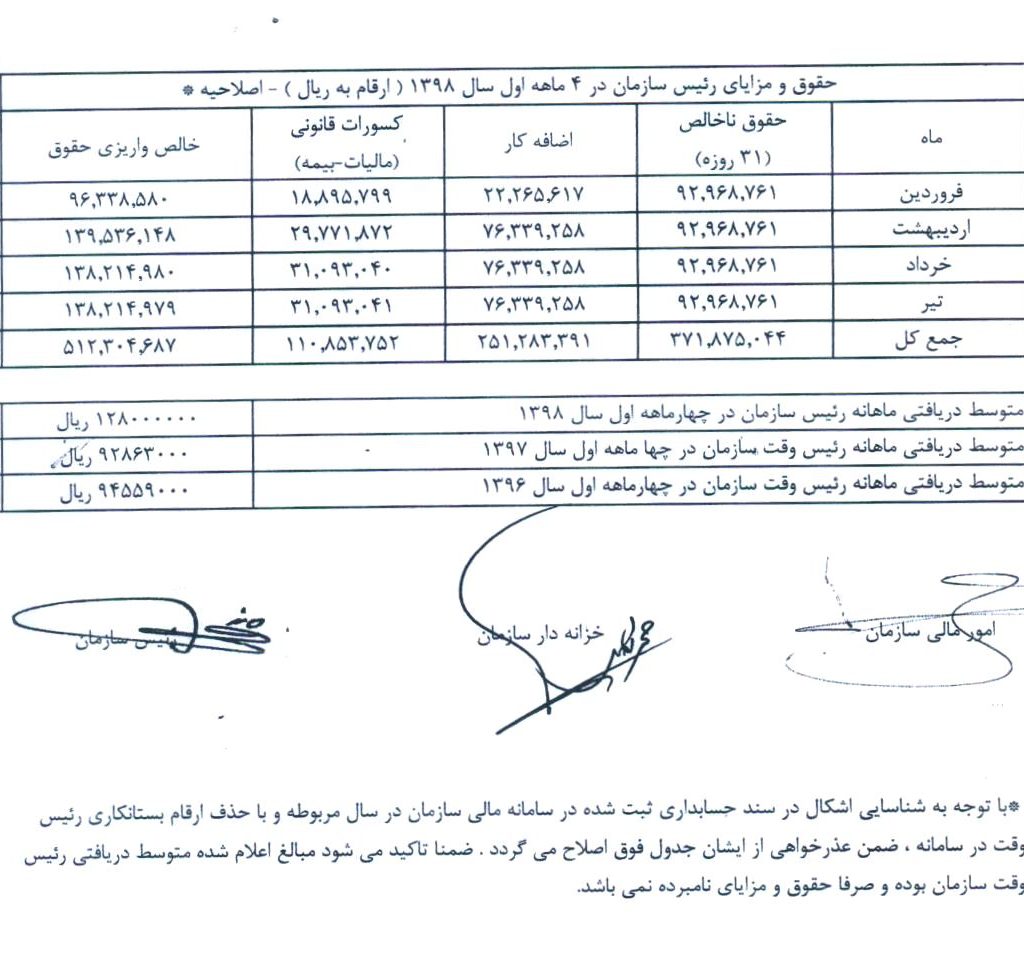 حقوق و مزایای رئیس سازمان در ۴ ماهه اول سال ۱۳۹۸ ( ارقام به ریال ) - اصلاحیه *
ماه حقوق ناخالص (۳۱ روزه) اضافه کار کسورات قانونی (مالیات-بیمه) خالص واریزی حقوق
فروردین ۹۲,۹۶۸,۷۶۱ ۲۲,۲۶۵,۶۱۷ ۱۸,۸۹۵,۷۹۹ ۹۶,۳۳۸,۵۸۰
اردیبهشت ۹۲,۹۶۸,۷۶۱ ۷۶,۳۳۹,۲۵۸ ۲۹,۷۷۱,۸۷۲ ۱۳۹,۵۳۶,۱۴۸
خرداد ۹۲,۹۶۸,۷۶۱ ۷۶,۳۳۹,۲۵۸ ۳۱,۰۹۳,۰۴۰ ۱۳۸,۲۱۴,۹۸۰
تیر ۹۲,۹۶۸,۷۶۱ ۷۶,۳۳۹,۲۵۸ ۳۱,۰۹۳,۰۴۱ ۱۳۸,۲۱۴,۹۷۹
جمع کل ۳۷۱,۸۷۵,۰۴۴ ۲۵۱,۲۸۳,۳۹۱ ۱۱۰,۸۵۳,۷۵۲ ۵۱۲,۳۰۴,۶۸۷
متوسط دریافتی ماهانه رئیس سازمان در چهارماهه اول سال ۱۳۹۸ ۱۲۸۰۰۰۰۰۰ ریال
متوسط دریافتی ماهانه رئیس وقت سازمان در چها ماهه اول سال ۱۳۹۷ ۹۲۸۶۳۰۰۰ ریال
متوسط دریافتی ماهانه رئیس وقت سازمان در چهارماهه اول سال ۱۳۹۶ ۹۴۵۵۹۰۰۰ ریال
امور مالی سازمان خزانه دار سازمان رئیس سازمان
*با توجه به شناسایی اشکال در سند حسابداری ثبت شده در سامانه مالی سازمان در سال مربوطه و با حذف ارقام بستانکاری رئیس
وقت در سامانه ، ضمن عذرخواهی از ایشان جدول فوق اصلاح می گردد . ضمنا تاکید می شود مبالغ اعلام شده متوسط دریافتی رئیس
وقت سازمان بوده و صرفا حقوق و مزایای نامبرده نمی باشد.